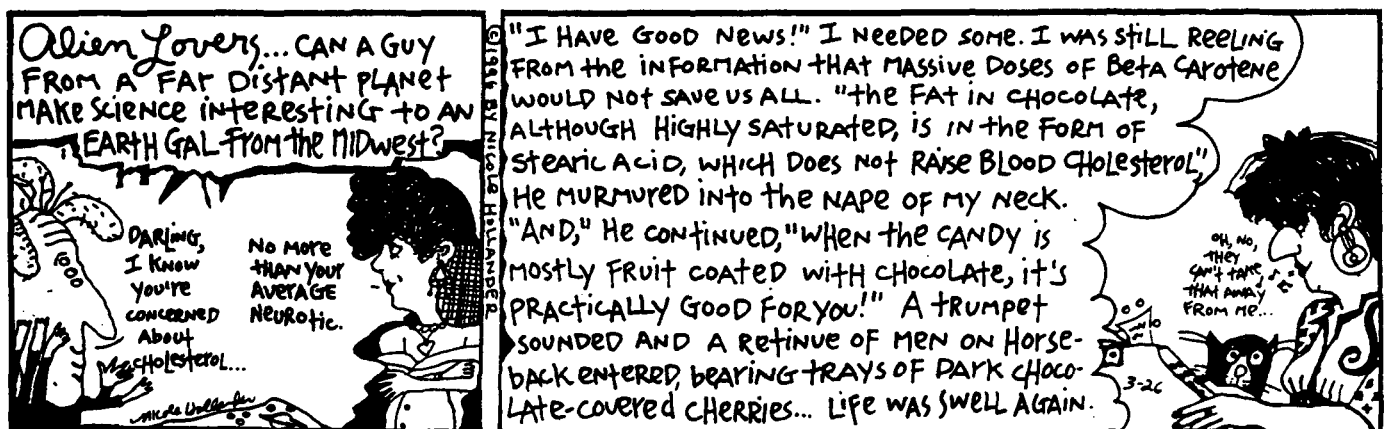 Alien Lovers... CAN A GUY
FROM A FAR DISTANT PLANET
MAKE SCIENCE INTERESTING TO AN
EARTH GAL FROM THE MIDWEST?
DARLING,
I KNOW
YOU'RE
CONCERNED
ABOUT
CHOLESTEROL...
NO MORE
THAN YOUR
AVERAGE
NEUROTIC.
Nicole Hollander
©1996 BY NICOLE HOLLANDER
"I HAVE GOOD NEWS!" I NEEDED SOME. I WAS STILL REELING
FROM THE INFORMATION THAT MASSIVE DOSES OF BETA CAROTENE
WOULD NOT SAVE US ALL. "THE FAT IN CHOCOLATE,
ALTHOUGH HIGHLY SATURATED, IS IN THE FORM OF
STEARIC ACID, WHICH DOES NOT RAISE BLOOD CHOLESTEROL,"
HE MURMURED INTO THE NAPE OF MY NECK.
"AND," HE CONTINUED, "WHEN THE CANDY IS
MOSTLY FRUIT COATED WITH CHOCOLATE, IT'S
PRACTICALLY GOOD FOR YOU!" A TRUMPET
SOUNDED AND A RETINUE OF MEN ON HORSE-
BACK ENTERED, BEARING TRAYS OF DARK CHOCO-
LATE-COVERED CHERRIES... LIFE WAS SWELL AGAIN.
OH, NO,
THEY
CAN'T TAKE
THAT AWAY
FROM ME...
3-26